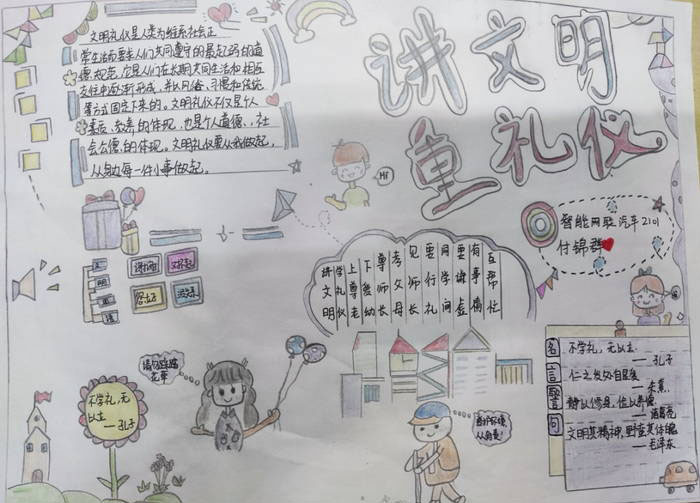 讲文明
重礼仪
文明礼仪是人类为维系社会正
常生活而要求人们共同遵守的最起码的道
德规范，它是人们在长期共同生活和相互
交往中逐渐形成，并以风俗、习惯和传统
等方式固定下来的。文明礼仪不仅是个人
素质、教养的体现，也是个人道德、社
会公德的体现。文明礼仪要从我做起，
从身边每一件小事做起。
Hi
智能网联汽车2101
付锦群
讲文明
学礼仪
上尊老
下爱幼
尊师长
考父母
见师长
要行礼
同学间
要谦虚
有事情
互帮忙
文明用语
谢谢您
对不起
没关系
不学礼，无
以立
——孔子
请勿践踏
花草
爱护环境，
从我做起
名言警句
不学礼，无以立
——孔子
仁之发处自是爱
——朱熹
静以修身，俭以养德
——诸葛亮
文明其精神，野蛮其体魄
——毛泽东